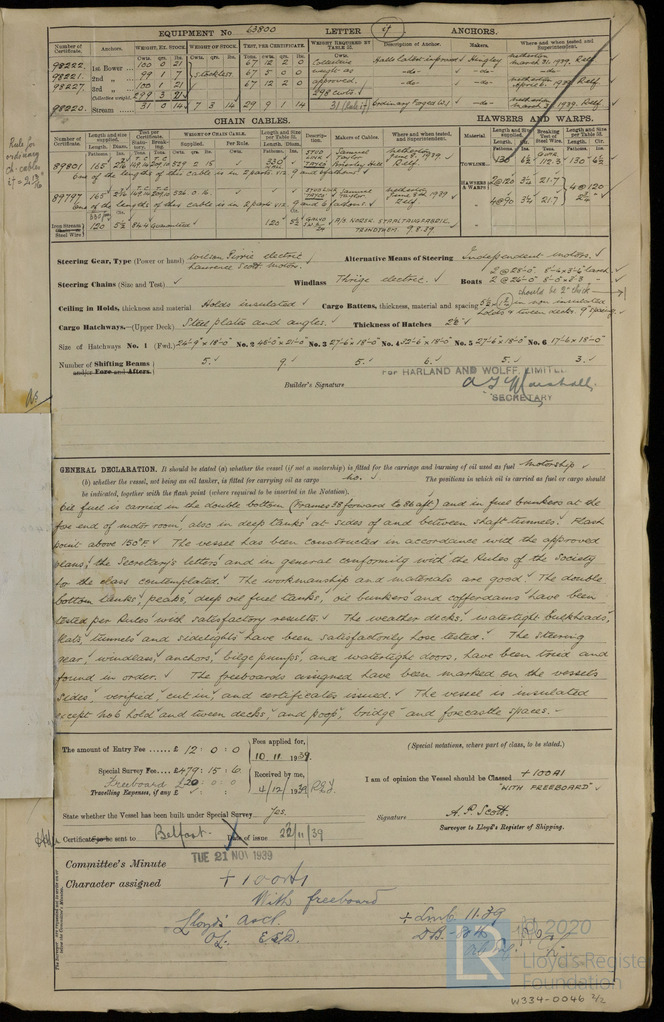 EQUIPMENT No 63800 LETTER ANCHORS.
Number of Certificate. Anchors. WEIGHT, EX. STOCK. WEIGHT OF STOCK. TEST, PER CERTIFICATE. WEIGHT REQUIRED BY TABLE 31. Description of Anchor. Makers. Where and when tested and Superintendent.
98222. 1st Bower 100 0 21 67 12 2 0 Collective Hingley March 31. 1939. Relf.
98221. 2nd " 99 1 7 Stockless. 67 5 0 0 weight as -do- -do-
98227. 3rd " 100 1 21 67 12 2 0 approved. -do- -do- April 6. 1939. Relf.
Collective weight 299 3 21 298 cwts
98220. Stream 31 0 14 7 3 14 29 9 1 14 31 Ordinary Forged -do- 1939. Relf.
CHAIN CABLES. HAWSERS AND WARPS.
Rule for ordinary ch. cables
89801 165 329 2 15 330 Stud Link Samuel Taylor 1939 Relf TOWLINE 130 6½ 112.3 130 6½
One of the lengths of this cable is in 2 parts viz. 9 and 6 fathoms.
89797 165 326 0 16 Samuel Taylor June 8th 1939 Relf HAWSERS & WARPS 2@120 3½ 21.7 4@120
One of the lengths of this cable is in 2 parts viz. 9 and 6 fathoms. 4@90 3½ 21.7 2¾
Steel Wire 120 5½ 86.4 Guaranteed 120 5½ A/S NORSK STAALTAUGFABRIK, TRONDHEIM 9.8.39
Steering Gear, Type (Power or hand) Wilson Pirrie electric Laurence Scott motor. Alternative Means of Steering Independent motors.
Steering Chains (Size and Test) Windlass Thrige electric. Boats 2 @ 28'-0"
2 @ 26'-0"
should be 2" thick
Ceiling in Holds, thickness and material Holds insulated Cargo Battens, thickness, material and spacing in non insulated holds & tween decks. 9" spacing
Cargo Hatchways.—(Upper Deck) Steel plates and angles. Thickness of Hatches 2½"
Size of Hatchways No. 1 (Fwd.) 24'-9" x 18'-0" No. 2 48'-0" x 21'-0" No. 3 27'-6" x 18'-0" No. 4 32'-6" x 18'-0" No. 5 27'-6" x 18'-0" No. 6 17'-6" x 18'-0"
Number of Shifting Beams and/or Fore and Afters. 5. 9. 5. 6. 5. 3.
FOR HARLAND AND WOLFF, LIMITED
Builder's Signature
SECRETARY
GENERAL DECLARATION. It should be stated (a) whether the vessel (if not a motorship) is fitted for the carriage and burning of oil used as fuel Motorship
(b) whether the vessel, not being an oil tanker, is fitted for carrying oil as cargo no. The positions in which oil is carried as fuel or cargo should
be indicated, together with the flash point (where required to be inserted in the Notation).
Oil fuel is carried in the double bottom (Frames 38 forward to 86 aft) and in fuel bunkers at the
fore end of motor room, also in deep tanks at sides of and between shaft tunnels. Flash
point above 150°F. The vessel has been constructed in accordance with the approved
plans, the Secretary's letters and in general conformity with the Rules of the Society
for the class contemplated. The workmanship and materials are good. The double
bottom tanks, peaks, deep oil fuel tanks, oil bunkers and cofferdams have been
tested per Rules with satisfactory results. The weather decks, watertight bulkheads,
flats, tunnels and sidelights have been satisfactorily hose tested. The steering
gear, windlass, anchors, bilge pumps, and watertight doors, have been tried and
found in order. The freeboards assigned have been marked on the vessels
sides, verified, cut in, and certificates issued. The vessel is insulated
except No 6 hold and tween decks, and poop, bridge and forecastle spaces.
The amount of Entry Fee ...... £ 12 : 0 : 0 Fees applied for, 10. 11. 1939. (Special notations, where part of class, to be stated.)
Special Survey Fee.... £479 : 15 : 6 Received by me,
Freeboard £20 : 0 : 0 4/12/1939
Travelling Expenses, if any £
I am of opinion the Vessel should be Classed +100A1
"WITH FREEBOARD"
State whether the Vessel has been built under Special Survey Yes. Signature A. P. Scott.
Surveyor to Lloyd's Register of Shipping.
Certificate to be sent to Belfast. Date of issue 22/11/39
TUE 21 NOV 1939
Committee's Minute
Character assigned +100A1
With freeboard
Lloyd's A&CP. + LMC 11.39
OL. ESD. DB
© 2020
Lloyd's Register
Foundation
W334-0046 2/2